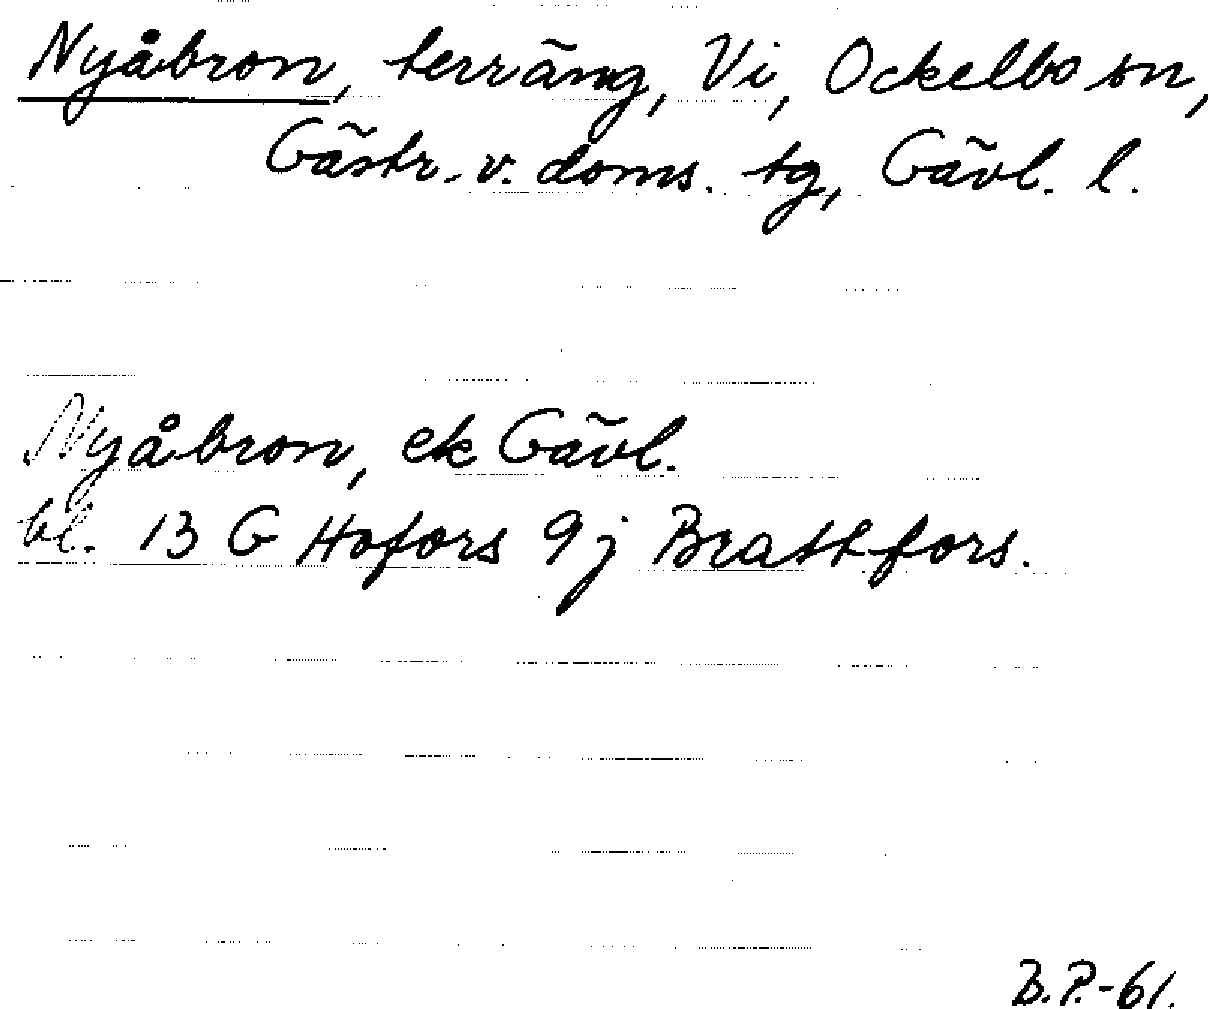 Nyåbron, terräng, Vi, Ockelbo sn,
Gästr. v. doms. tg, Gävl. l.
Nyåbron, ek Gävl.
bl. 13 G Hofors 9j Brattfors.
B.P.-61.